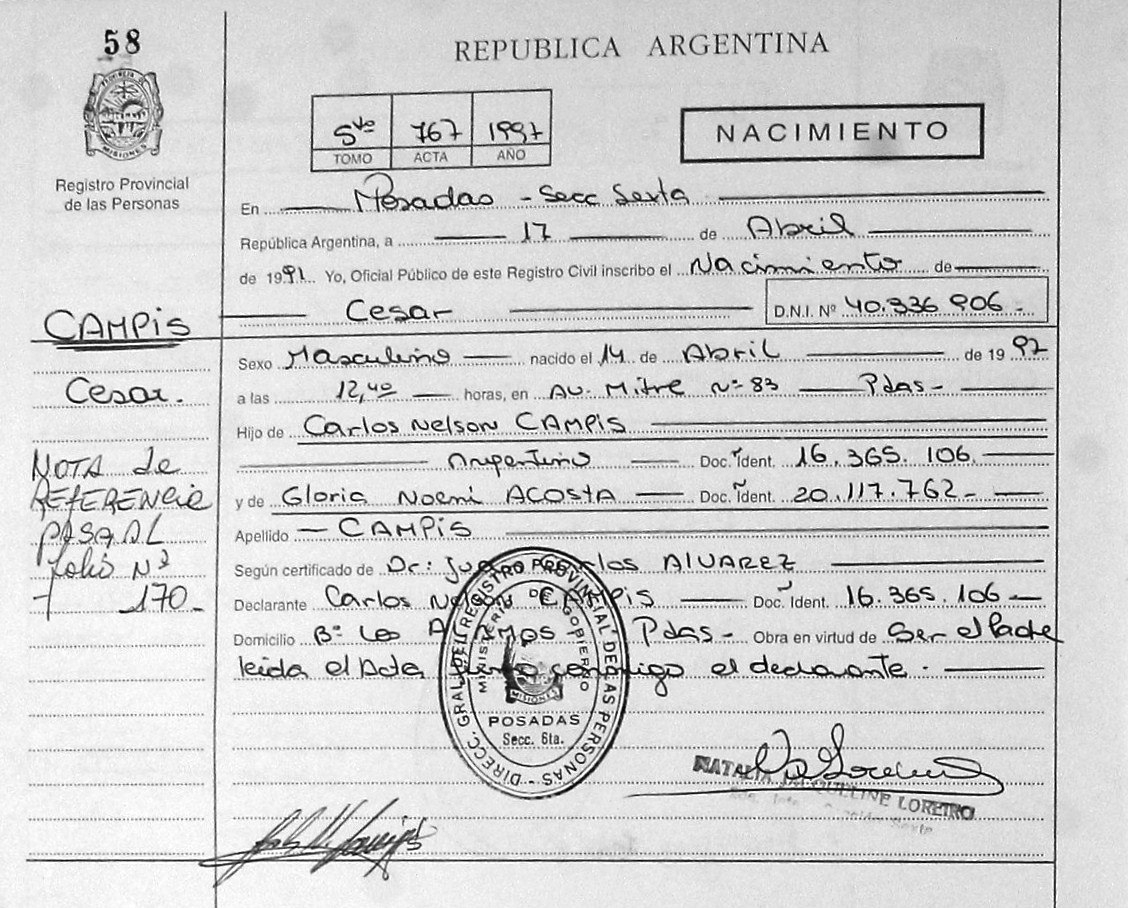 58
REPUBLICA ARGENTINA
PROVINCIA D MISIONES
Registro Provincial
de las Personas
5to 767 1997
TOMO ACTA AÑO
NACIMIENTO
En Posadas - Secc Sexta
República Argentina, a 17 de Abril
de 1997. Yo, Oficial Público de este Registro Civil inscribo el Nacimiento de
Cesar D.N.I. Nº 40.336 906-
CAMPIS
Cesar.
Sexo Masculino nacido el 14 de Abril de 19 97
a las 12,40 horas, en AV. Mitre Nº 83 Pdas-
Hijo de Carlos Nelson CAMPIS
Argentino Doc. Ident. 16.365.106.
y de Gloria Noemi ACOSTA Doc. Ident. 20.117.762-
Apellido - CAMPIS
Según certificado de Dr: Juan Carlos ALVAREZ
Declarante Carlos Nelson CAMPIS Doc. Ident. 16.365.106
Domicilio Bº Los Pdas- Obra en virtud de Ser el Padre
leida el Acta firma conmigo el declarante.
NOTA de
REFERENCIA
PASA AL
folio Nº
170-
DIRECC. GRAL. DEL REGISTRO PROVINCIAL DE LAS PERSONAS
MINISTERIO DE GOBIERNO
MISIONES
POSADAS
Secc. 6ta.
NATALIA JAQUELINE LOREIRO